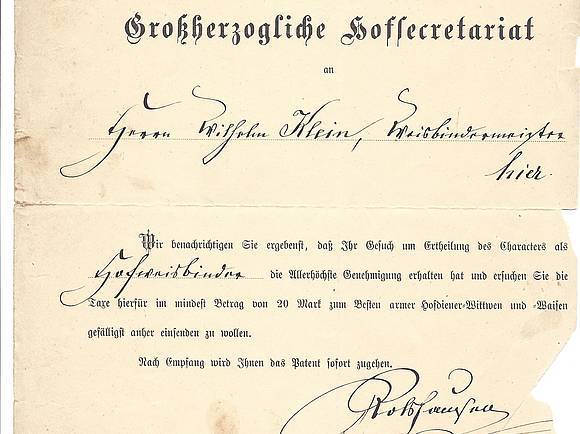 Großherzogliche Hofsecretariat
an
Herrn Wilhelm Klein, Weisbindermeister
hier.
Wir benachrichtigen Sie ergebenst, daß Ihr Gesuch um Ertheilung des Characters als
Hofweisbinder die Allerhöchste Genehmigung erhalten hat und ersuchen Sie die
Taxe hierfür im mindest Betrag von 20 Mark zum Besten armer Hofdiener-Wittwen und -Waisen
gefälligst anher einsenden zu wollen.
Nach Empfang wird Ihnen das Patent sofort zugehen.
Rolshausen